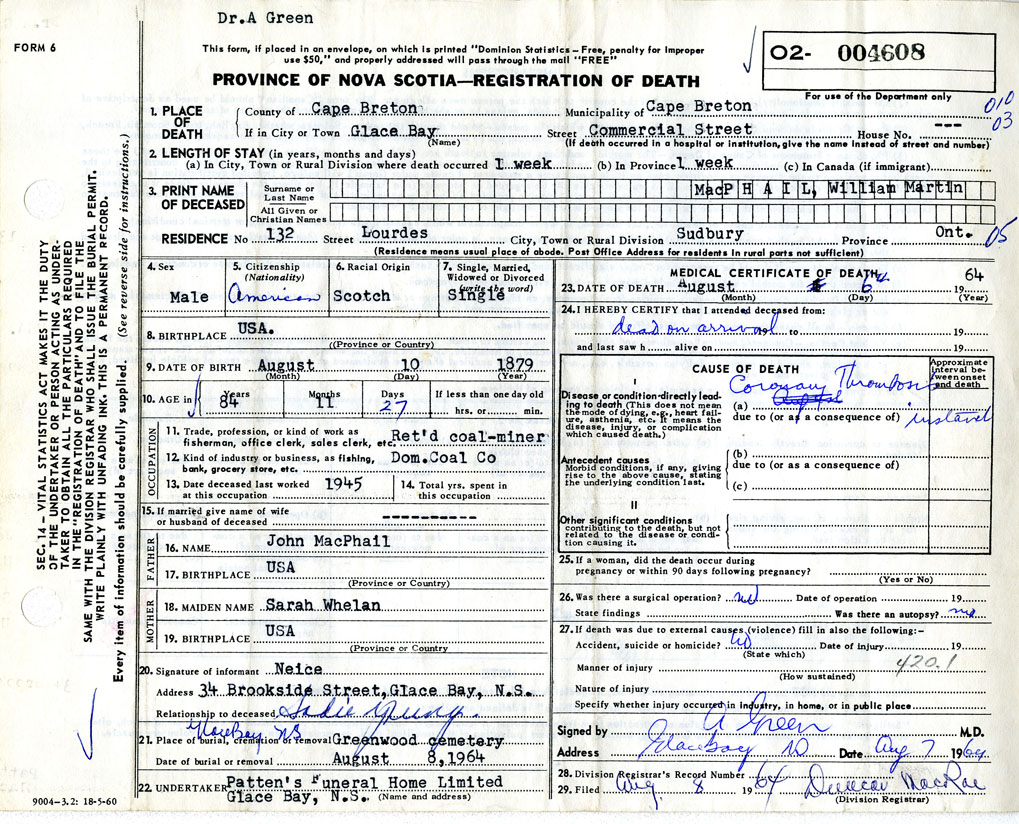 Dr.A Green
FORM 6
This form, if placed in an envelope, on which is printed "Dominion Statistics – Free, penalty for improper
use $50," and properly addressed will pass through the mail "FREE"
O2- 004608
PROVINCE OF NOVA SCOTIA—REGISTRATION OF DEATH
For use of the Department only
010
03
1. PLACE OF DEATH
County of Cape Breton Municipality of Cape Breton
If in City or Town Glace Bay Street Commercial Street House No. ---
(Name) (If death occurred in a hospital or institution, give the name instead of street and number)
2. LENGTH OF STAY (in years, months and days)
(a) In City, Town or Rural Division where death occurred 1 week (b) In Province 1 week (c) In Canada (if immigrant)
3. PRINT NAME OF DECEASED
Surname or Last Name MacPHAIL, William Martin
All Given or Christian Names
RESIDENCE No 132 Street Lourdes City, Town or Rural Division Sudbury Province Ont. 05
(Residence means usual place of abode. Post Office Address for residents in rural parts not sufficient)
4. Sex 5. Citizenship (Nationality) 6. Racial Origin 7. Single, Married, Widowed or Divorced (write the word)
Male American Scotch Single
8. BIRTHPLACE USA.
((Province or Country)
9. DATE OF BIRTH August 10 1879
(Month) (Day) (Year)
10. AGE in Years Months Days If less than one day old
84 11 27 hrs. or min.
OCCUPATION
11. Trade, profession, or kind of work as
fisherman, office clerk, sales clerk, etc. Ret'd coal-miner
12. Kind of industry or business, as fishing,
bank, grocery store, etc. Dom.Coal Co
13. Date deceased last worked at this occupation 1945 14. Total yrs. spent in this occupation
15. If married give name of wife
or husband of deceased ----------
FATHER
16. NAME John MacPhail
17. BIRTHPLACE USA
(Province or Country)
MOTHER
18. MAIDEN NAME Sarah Whelan
19. BIRTHPLACE USA
(Province or Country
20. Signature of informant Neice
Address 34 Brookside Street,Glace Bay, N.S.
Relationship to deceased Sadie Young.
Glace Bay NS
21. Place of burial, cremation or removal Greenwood cemetery
Date of burial or removal August 8,1964
22. UNDERTAKER Patten's Funeral Home Limited
Glace Bay, N.S. (Name and address)
9004-3.2: 18-5-60
MEDICAL CERTIFICATE OF DEATH
23. DATE OF DEATH August 6th 19 64
(Month) (Day) (Year)
24. I HEREBY CERTIFY that I attended deceased from:
dead on arrival to 19
and last saw h alive on 19
CAUSE OF DEATH
Approximate interval between onset and death
I
Disease or condition directly leading to death (This does not mean the mode of dying, e.g., heart failure, asthenia, etc. It means the disease, injury, or complication which caused death.)
(a) Coronary Thrombosis
due to (or as a consequence of)
Antecedent causes
Morbid conditions, if any, giving rise to the above cause, stating the underlying condition last.
(b)
due to (or as a consequence of)
(c)
II
Other significant conditions
contributing to the death, but not related to the disease or condition causing it.
25. If a woman, did the death occur during
pregnancy or within 90 days following pregnancy?
(Yes or No)
26. Was there a surgical operation? no Date of operation 19
State findings Was there an autopsy? no
27. If death was due to external causes (violence) fill in also the following:–
Accident, suicide or homicide? no Date of injury 19
(State which) 420.1
Manner of injury
(How sustained)
Nature of injury
Specify whether injury occurred in industry, in home, or in public place
Signed by A Green M.D.
Address Glace Bay Date Aug 7 1964
28. Division Registrar's Record Number
29. Filed Aug. 8 1964 Duncan MacRae
(Division Registrar)
SEC. 14 – VITAL STATISTICS ACT MAKES IT THE DUTY
OF THE UNDERTAKER OR PERSON ACTING AS UNDER-
TAKER TO OBTAIN ALL THE PARTICULARS REQUIRED
IN THE "REGISTRATION OF DEATH" AND TO FILE THE
SAME WITH THE DIVISION REGISTRAR WHO SHALL ISSUE THE BURIAL PERMIT.
WRITE PLAINLY WITH UNFADING INK. THIS IS A PERMANENT RECORD.
Every item of information should be carefully supplied. (See reverse side for instructions.)